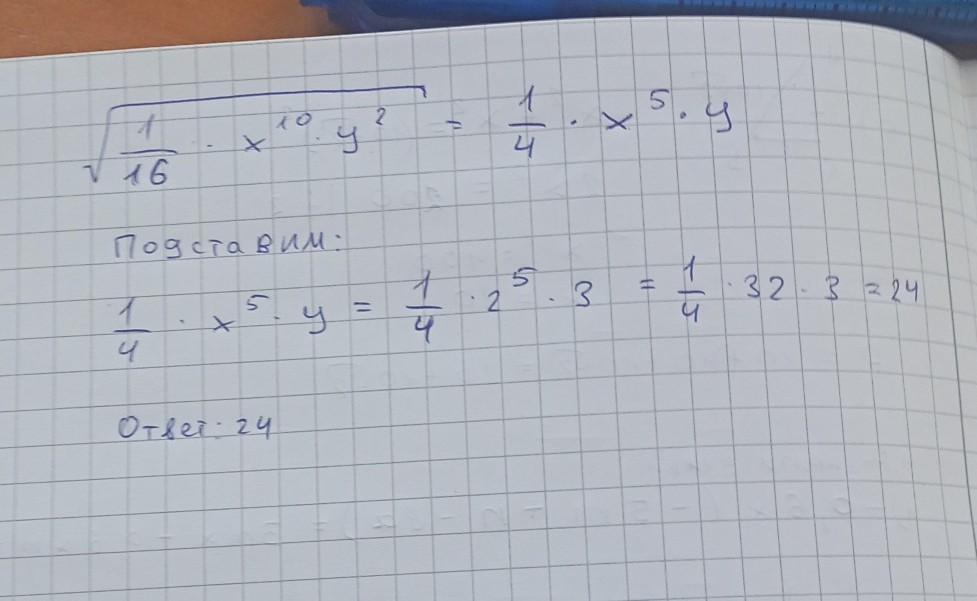 √(1/16 · x^10 · y^2) = 1/4 · x^5 · y
Подставим:
1/4 · x^5 · y = 1/4 · 2^5 · 3 = 1/4 · 32 · 3 = 24
Ответ: 24